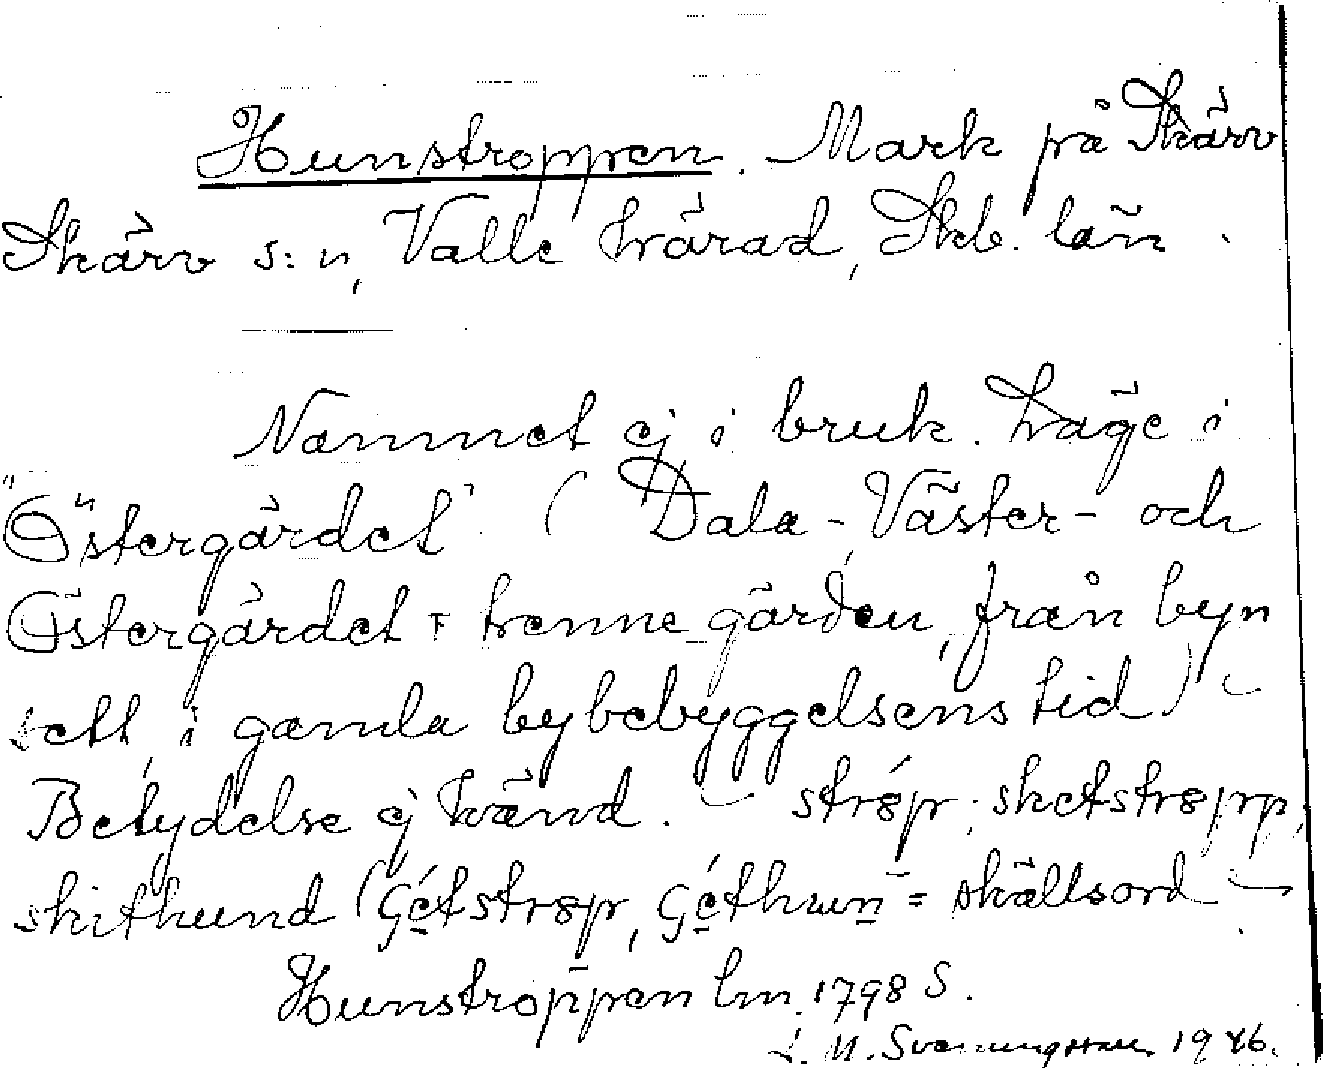 Hunstroppen. Mark på Skärv
Skärv s:n, Valle härad, Skb. län.
Namnet ej i bruk. Läge i
"Östergärdet". (Dala-, Väster- och
Östergärdet = trenne gärden, från byn
sett, i gamla bybebyggelsens tid)
Betydelse ej känd. strøp; sketstrøpp,
skithund (gétstrøp, géthun = skällsord
Hunstroppen lm. 1798 S.
L. M. Svenungsson 1946.